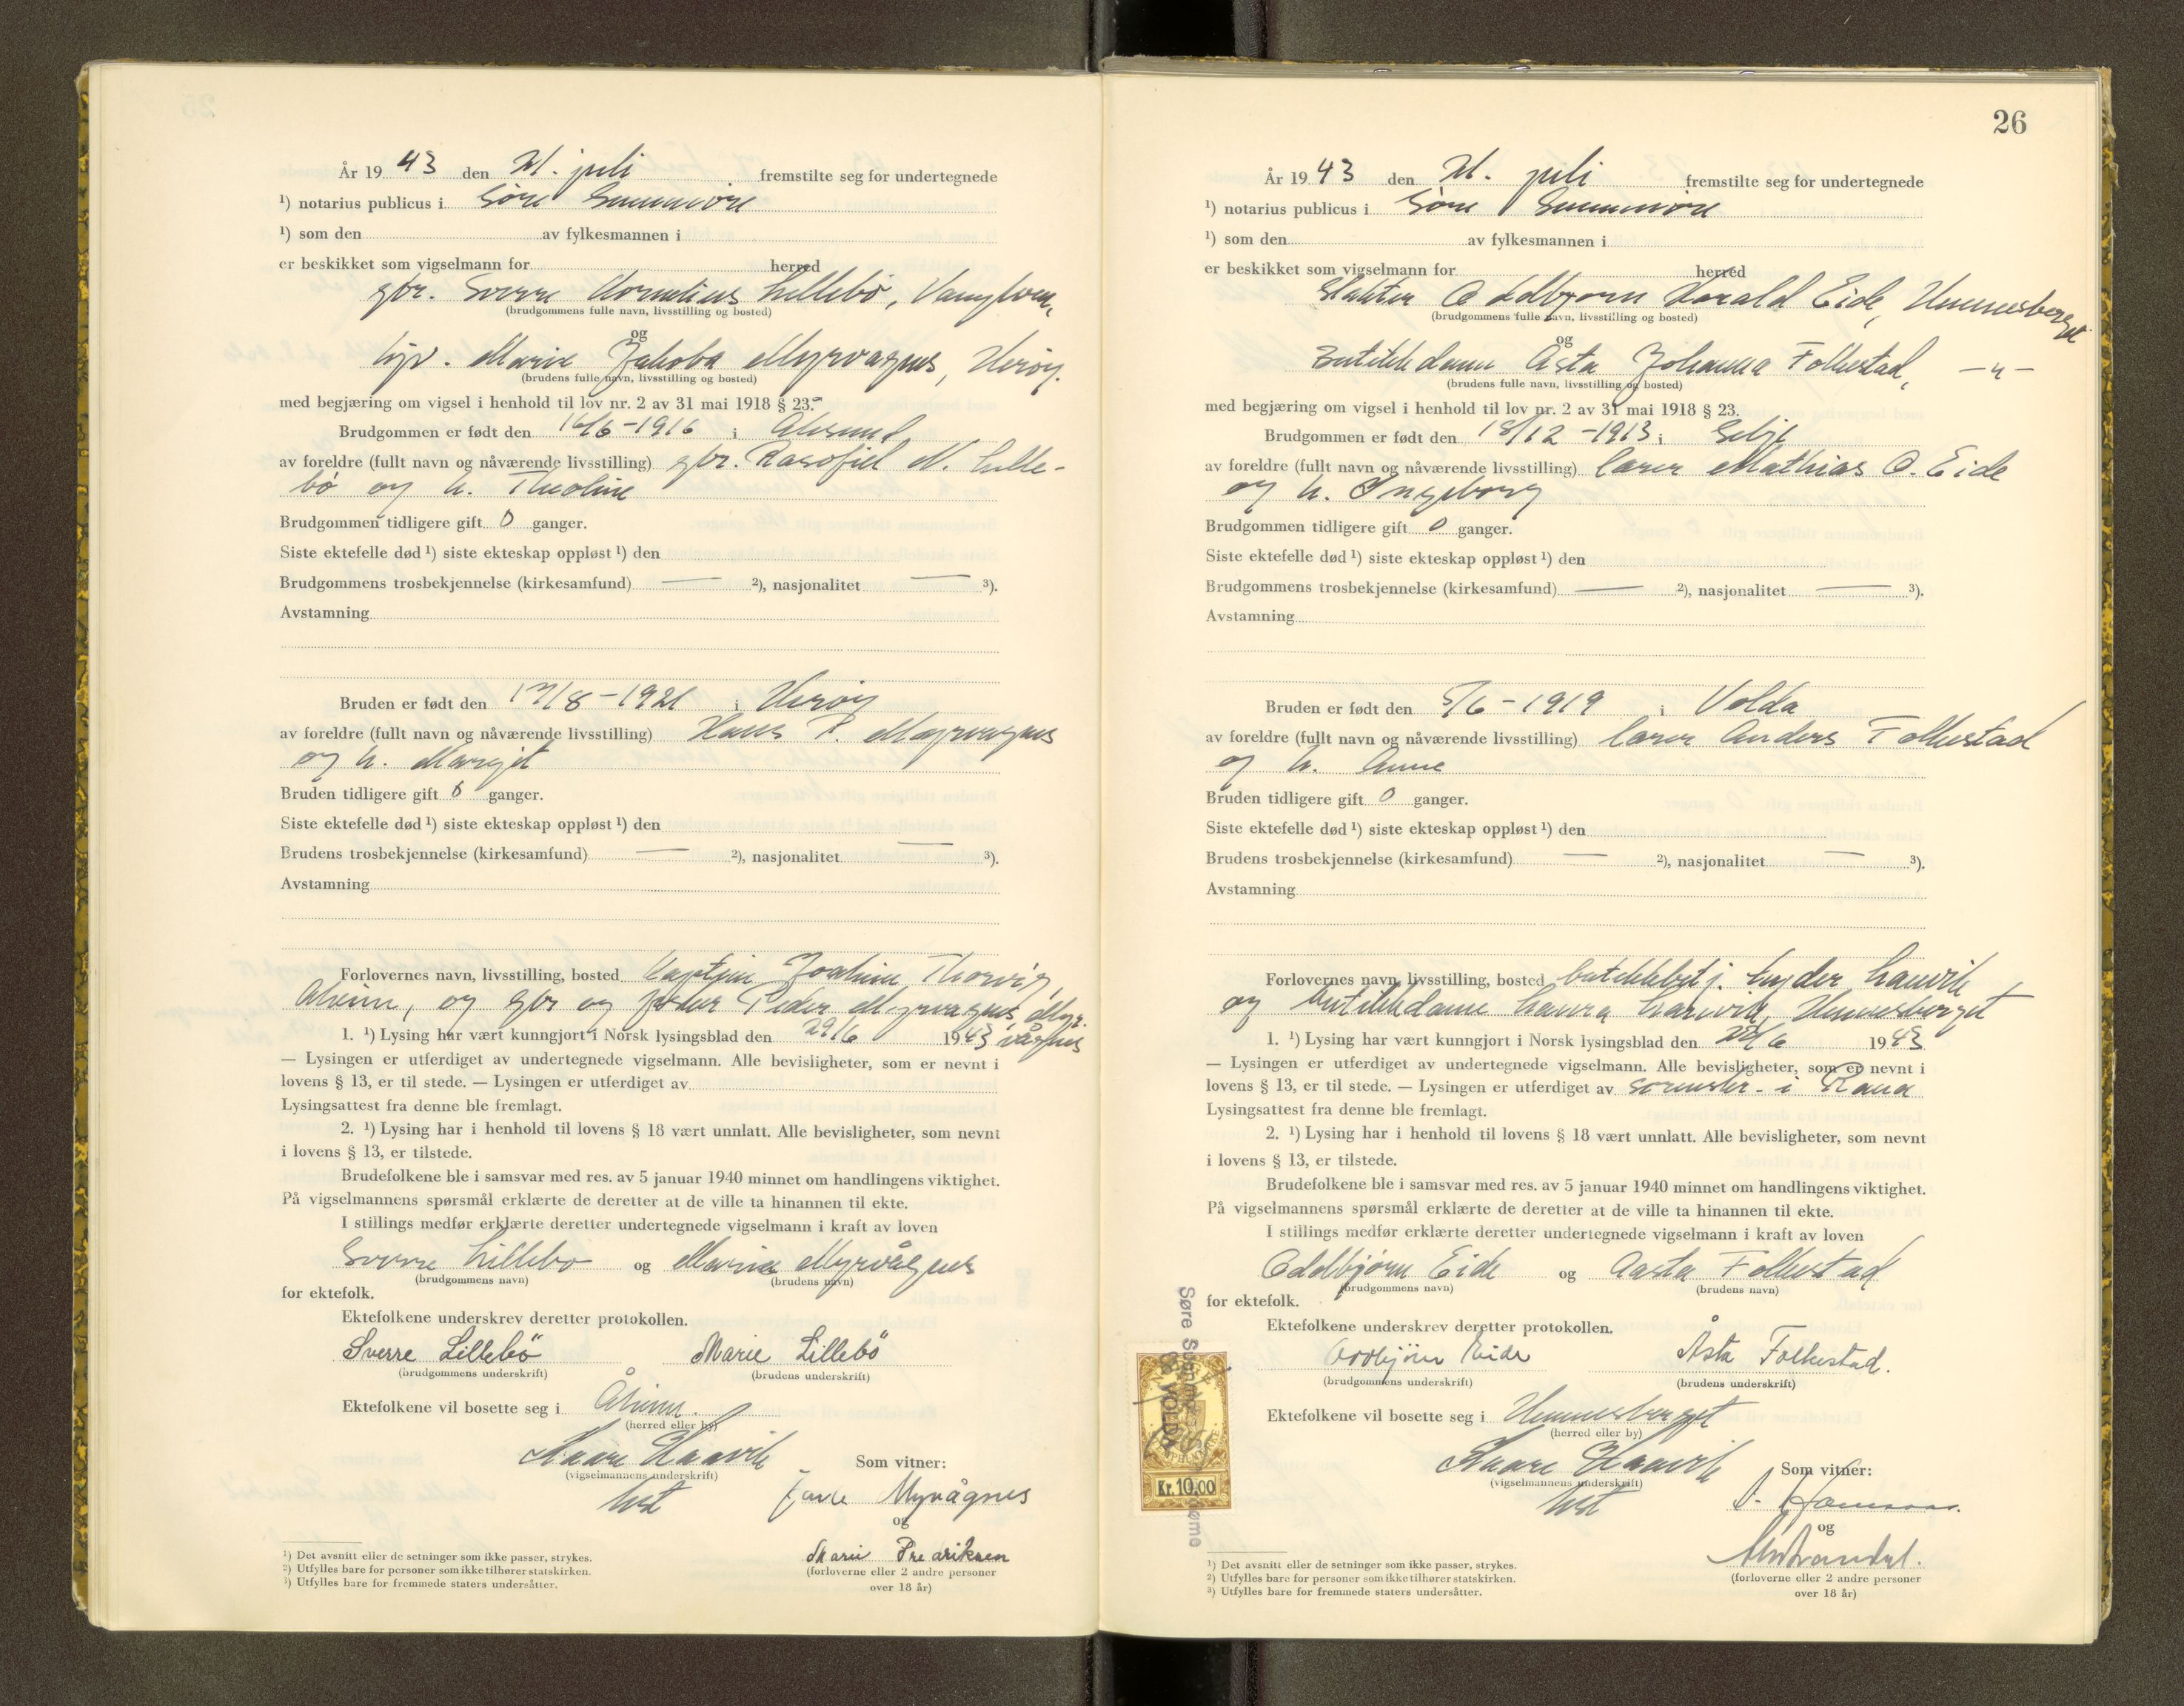 År 1943 den 21. juli fremstilte seg for undertegnede
¹) notarius publicus i Søre Sunnmøre
¹) som den av fylkesmannen i
er beskikket som vigselmann for herred
gbr. Sverre Kornelius Lillebö,
(brudgommens fulle navn, livsstilling og bosted)
og
Marie Jakoba Myrvagnes, Herøy.
(brudens fulle navn, livsstilling og bosted)
med begjæring om vigsel i henhold til lov nr. 2 av 31 mai 1918 § 23.
Brudgommen er født den 16/6-1916 i Ålesund
av foreldre (fullt navn og nåværende livsstilling) gbr. N. Lille-
bö og h. Theoline
Brudgommen tidligere gift 0 ganger.
Siste ektefelle død ¹) siste ekteskap oppløst ¹) den
Brudgommens trosbekjennelse (kirkesamfund) — ²), nasjonalitet — ³).
Avstamning
Bruden er født den 17/8-1921 i Herøy
av foreldre (fullt navn og nåværende livsstilling) Hans P. Myrvagnes
og h. Margit
Bruden tidligere gift 0 ganger.
Siste ektefelle død ¹) siste ekteskap oppløst ¹) den
Brudens trosbekjennelse (kirkesamfund) — ²), nasjonalitet — ³).
Avstamning
Forlovernes navn, livsstilling, bosted Kaptein Joakim Thorvig,
Åheim, og gbr og fisker Peder Myrvagnes, Myr-
1. ¹) Lysing har vært kunngjort i Norsk lysingsblad den 29/6 1943 vågnes
— Lysingen er utferdiget av undertegnede vigselmann. Alle bevisligheter, som er nevnt i
lovens § 13, er til stede. — Lysingen er utferdiget av
Lysingsattest fra denne ble fremlagt.
2. ¹) Lysing har i henhold til lovens § 18 vært unnlatt. Alle bevisligheter, som nevnt
i lovens § 13, er tilstede.
Brudefolkene ble i samsvar med res. av 5 januar 1940 minnet om handlingens viktighet.
På vigselmannens spørsmål erklærte de deretter at de ville ta hinannen til ekte.
I stillings medfør erklærte deretter undertegnede vigselmann i kraft av loven
Sverre Lillebö og Marie Myrvågnes
(brudgommens navn) (brudens navn)
for ektefolk.
Ektefolkene underskrev deretter protokollen.
Sverre Lillebö Marie Lillebö
(brudgommens underskrift) (brudens underskrift)
Ektefolkene vil bosette seg i Åheim.
(herred eller by)
Kaare Haavik
(vigselmannens underskrift) Som vitner:
Myrvågnes
og
Marie Fredriksen
(forloverne eller 2 andre personer
over 18 år)
¹) Det avsnitt eller de setninger som ikke passer, strykes.
²) Utfylles bare for personer som ikke tilhører statskirken.
³) Utfylles bare for fremmede staters undersåtter.
26
År 1943 den 21. juli fremstilte seg for undertegnede
¹) notarius publicus i Søre Sunnmøre
¹) som den av fylkesmannen i
er beskikket som vigselmann for herred
Oddbjørn Harald Eide, Hemnesberget
(brudgommens fulle navn, livsstilling og bosted)
og
Butikkdame Åsta Johanna Folkestad, —"—
(brudens fulle navn, livsstilling og bosted)
med begjæring om vigsel i henhold til lov nr. 2 av 31 mai 1918 § 23.
Brudgommen er født den 18/12-1913 i Selje
av foreldre (fullt navn og nåværende livsstilling) lærer Mathias O. Eide
og h. Ingeborg
Brudgommen tidligere gift 0 ganger.
Siste ektefelle død ¹) siste ekteskap oppløst ¹) den
Brudgommens trosbekjennelse (kirkesamfund) — ²), nasjonalitet — ³).
Avstamning
Bruden er født den 5/6-1919 i Volda
av foreldre (fullt navn og nåværende livsstilling) lærer Anders Folkestad
og h. Anne
Bruden tidligere gift 0 ganger.
Siste ektefelle død ¹) siste ekteskap oppløst ¹) den
Brudens trosbekjennelse (kirkesamfund) — ²), nasjonalitet — ³).
Avstamning
Forlovernes navn, livsstilling, bosted butikkbetj.
og butikkdame Laura Hemnesberget
1. ¹) Lysing har vært kunngjort i Norsk lysingsblad den 22/6 1943
— Lysingen er utferdiget av undertegnede vigselmann. Alle bevisligheter, som er nevnt i
lovens § 13, er til stede. — Lysingen er utferdiget av sorenskr. i Rana
Lysingsattest fra denne ble fremlagt.
2. ¹) Lysing har i henhold til lovens § 18 vært unnlatt. Alle bevisligheter, som nevnt
i lovens § 13, er tilstede.
Brudefolkene ble i samsvar med res. av 5 januar 1940 minnet om handlingens viktighet.
På vigselmannens spørsmål erklærte de deretter at de ville ta hinannen til ekte.
I stillings medfør erklærte deretter undertegnede vigselmann i kraft av loven
Oddbjørn Eide og Aasta Folkestad
(brudgommens navn) (brudens navn)
for ektefolk.
Ektefolkene underskrev deretter protokollen.
Oddbjörn Eide Åsta Folkestad.
(brudgommens underskrift) (brudens underskrift)
Ektefolkene vil bosette seg i Hemnesberget
(herred eller by)
Kaare Haavik
(vigselmannens underskrift) Som vitner:
og
(forloverne eller 2 andre personer
over 18 år)
Kr. 10.00
¹) Det avsnitt eller de setninger som ikke passer, strykes.
²) Utfylles bare for personer som ikke tilhører statskirken.
³) Utfylles bare for fremmede staters undersåtter.